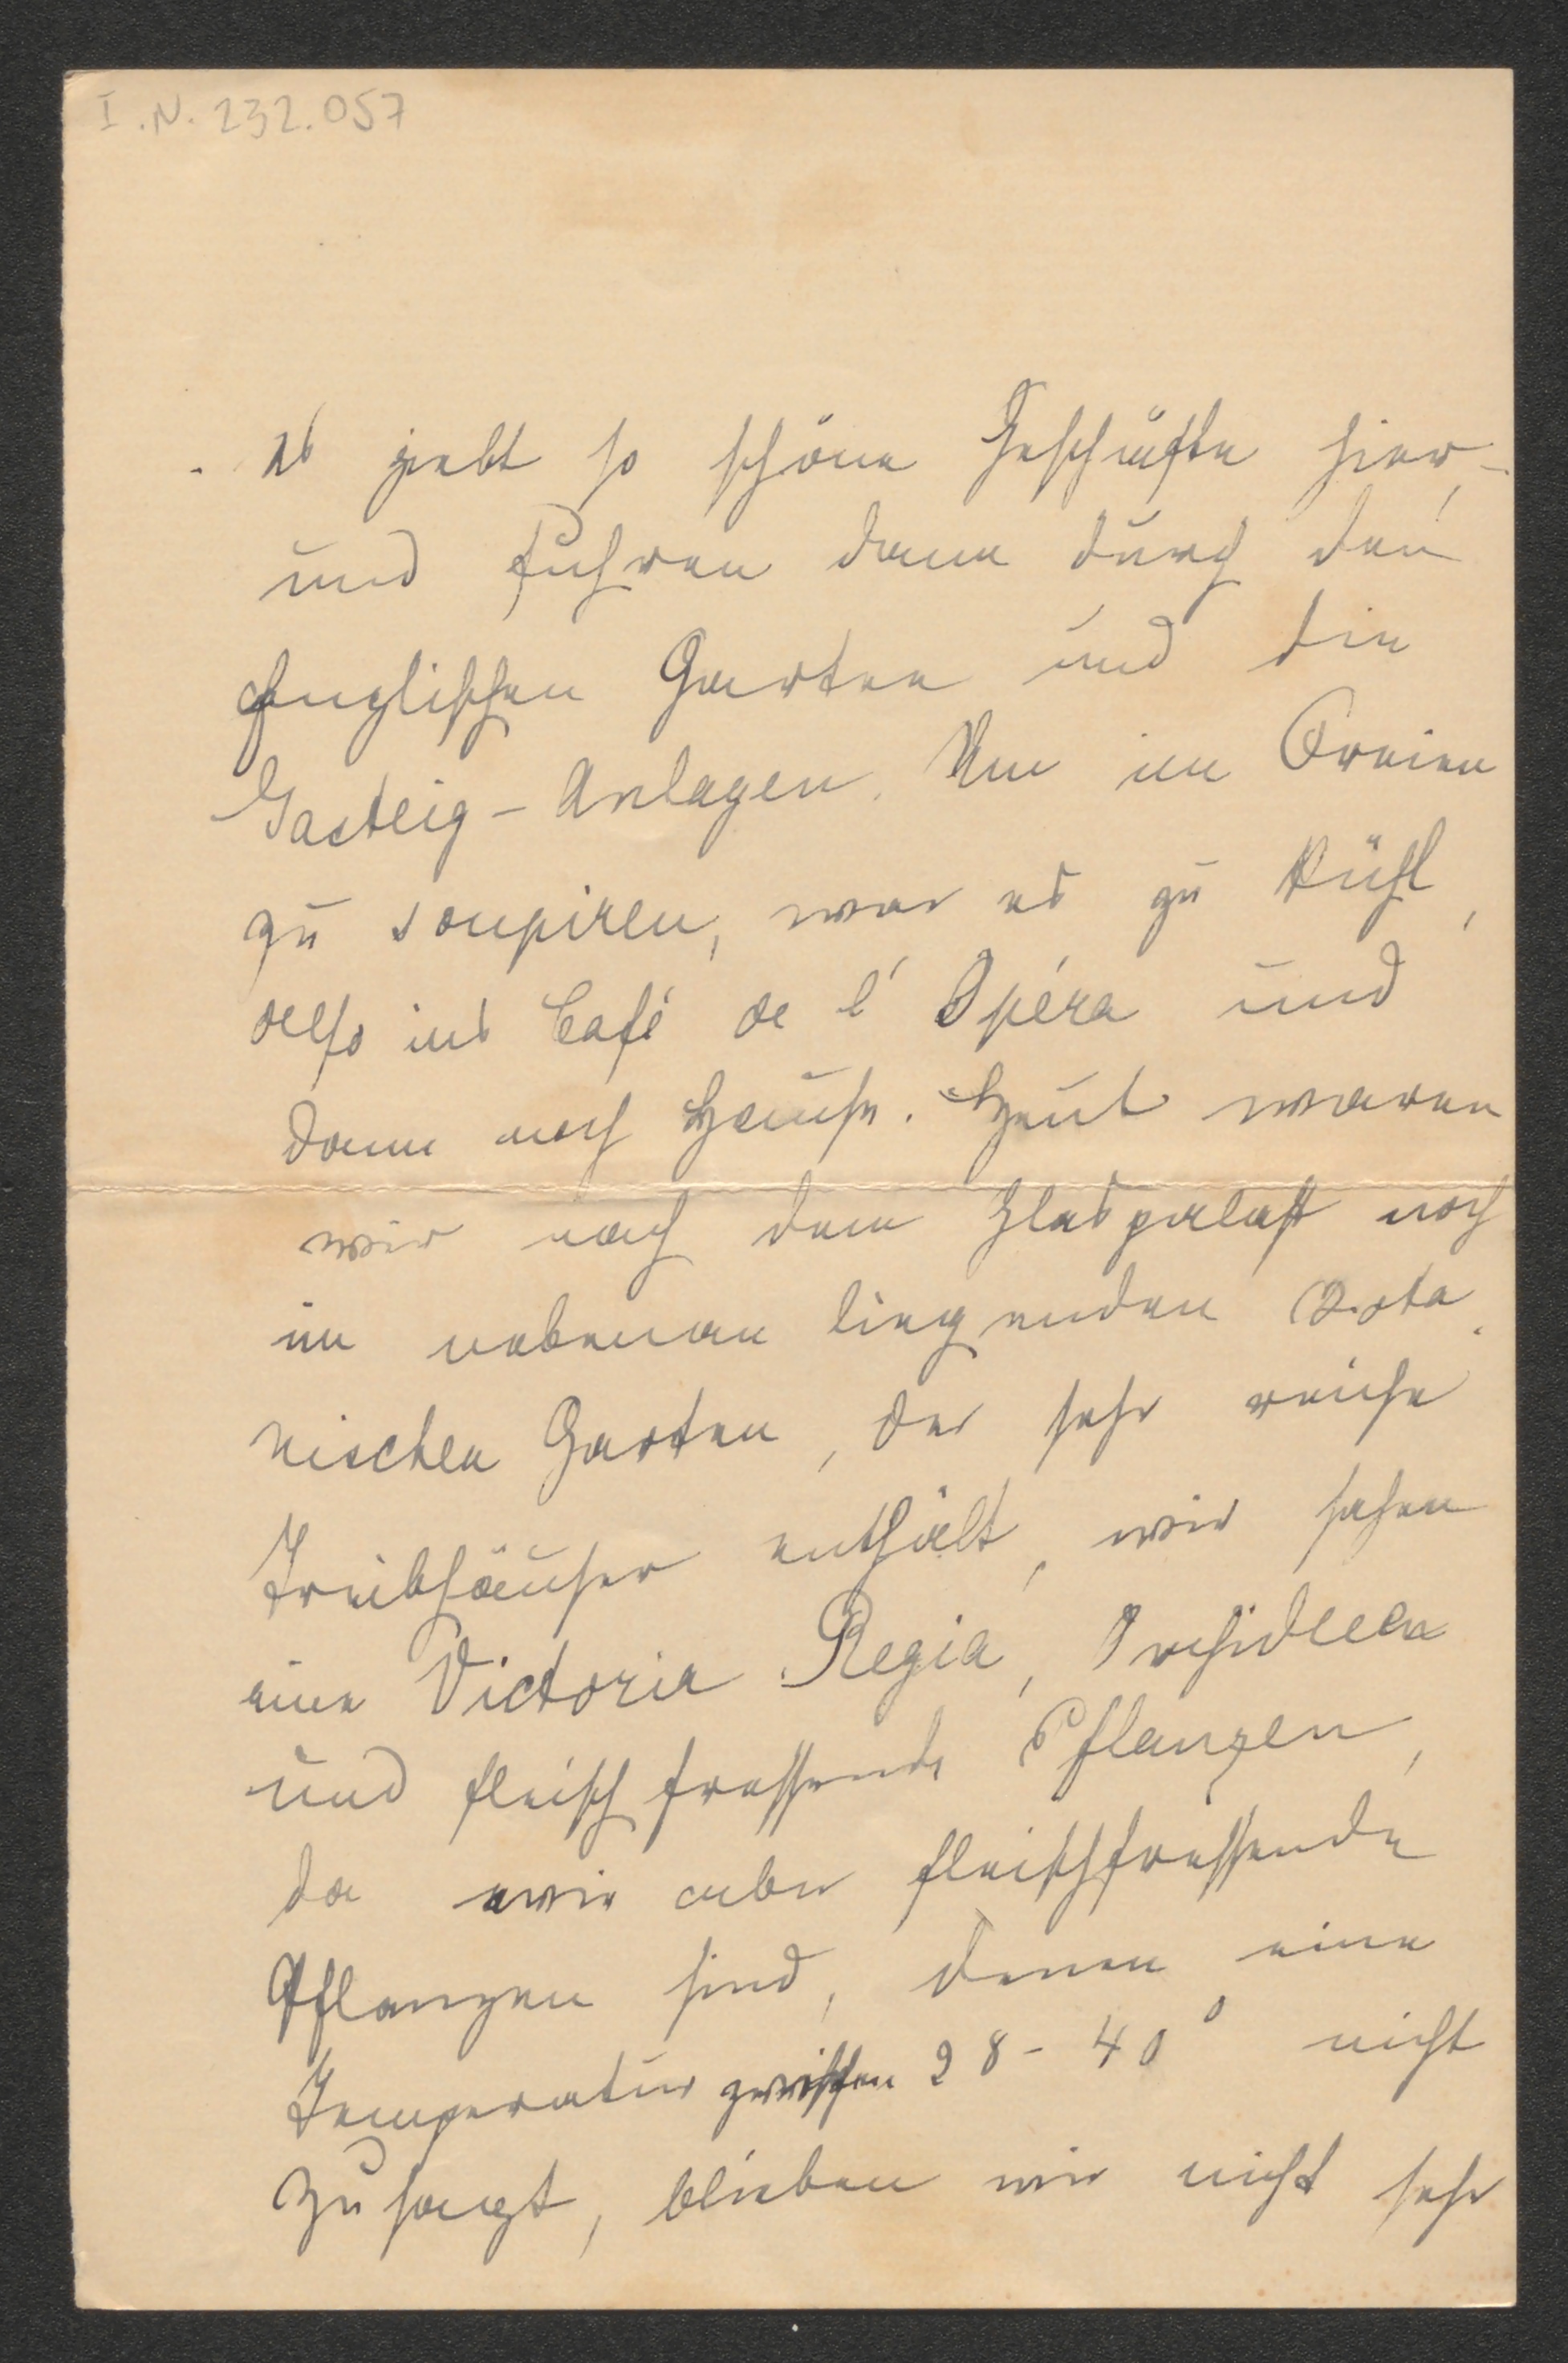 I.N. 232.057
es giebt so schöne Geschäfte hier, -
und fuhren dann durch den
Englischen Garten und die
Gasteig - Anlagen. Um im Freien
zu soupiren, war es zu kühl,
also ins Café de l'Opéra und
dann nach Hause. Heut waren
wir nach dem Glaspalast noch
im nebenan liegenden Bota
nischen Garten, der sehr reiche
Treibhäuser enthält, wir sahen
eine Victoria Regia, Orchideen
und fleischfressende Pflanzen,
da wir aber fleischfressende
Pflanzen sind, denen eine
Temperatur zwischen 28 - 40° nicht
zusagt, blieben wir nicht sehr